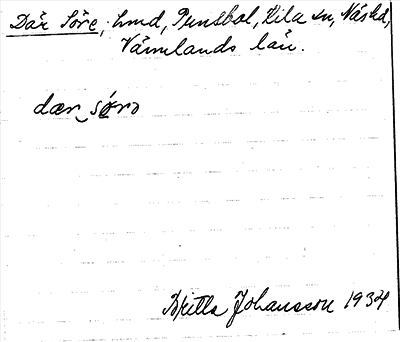 Där Söre, lmd, Pensbol, Kila sn, Näs hd,
Värmlands län.
dær‿sørə
Britta Johansson 1934